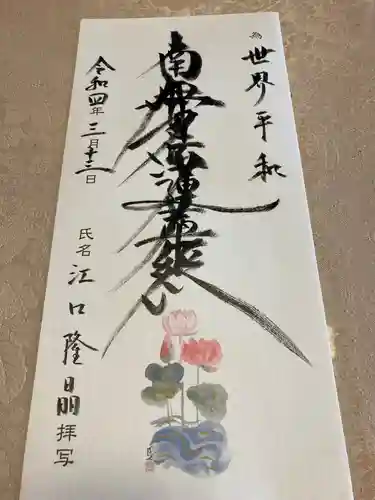 為世界平和
南無妙法蓮華経
令和四年三月十三日
氏名 江口隆明 拝写